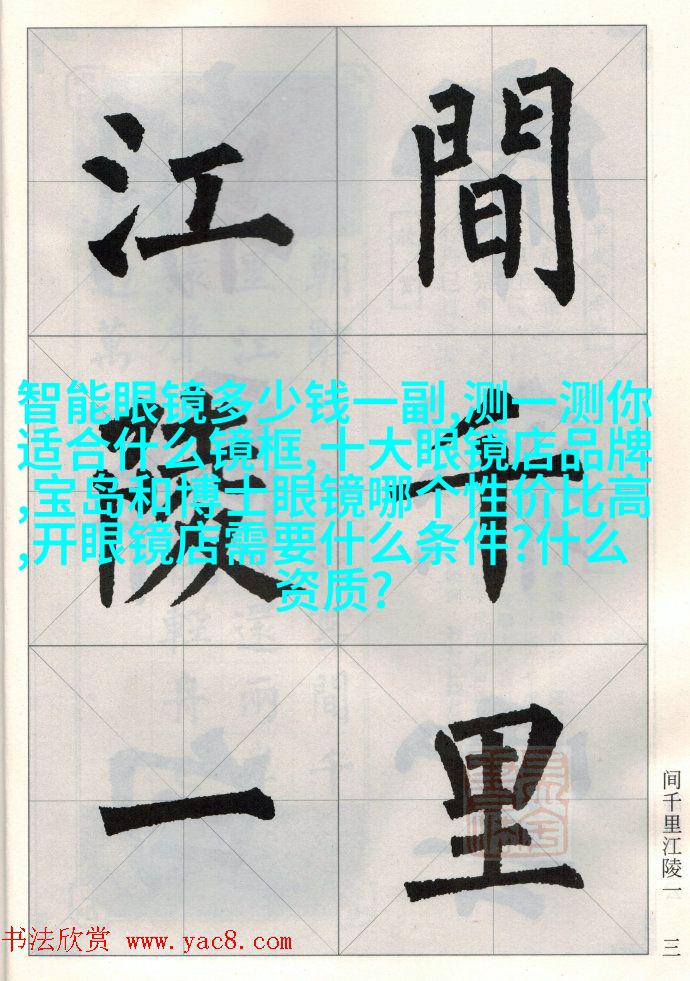 間千里
江陵一
智能眼镜多少钱一副,测一测你
适合什么镜框,十大眼镜店品牌
,宝岛和博士眼镜哪个性价比高
,开眼镜店需要什么条件?什么
资质?
间千里江陵一
三
书法欣赏 www.yac8.com